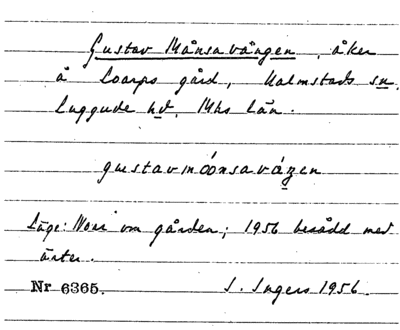 Gustav Månsavången, åker
å Loarps gård, Kalmstads sn,
Luggude hd, Mhs län.
gustavmóonsavázen
Läge: Norr om gården; 1956 besådd med
ärter.
Nr 6365. I. Ingers 1956.